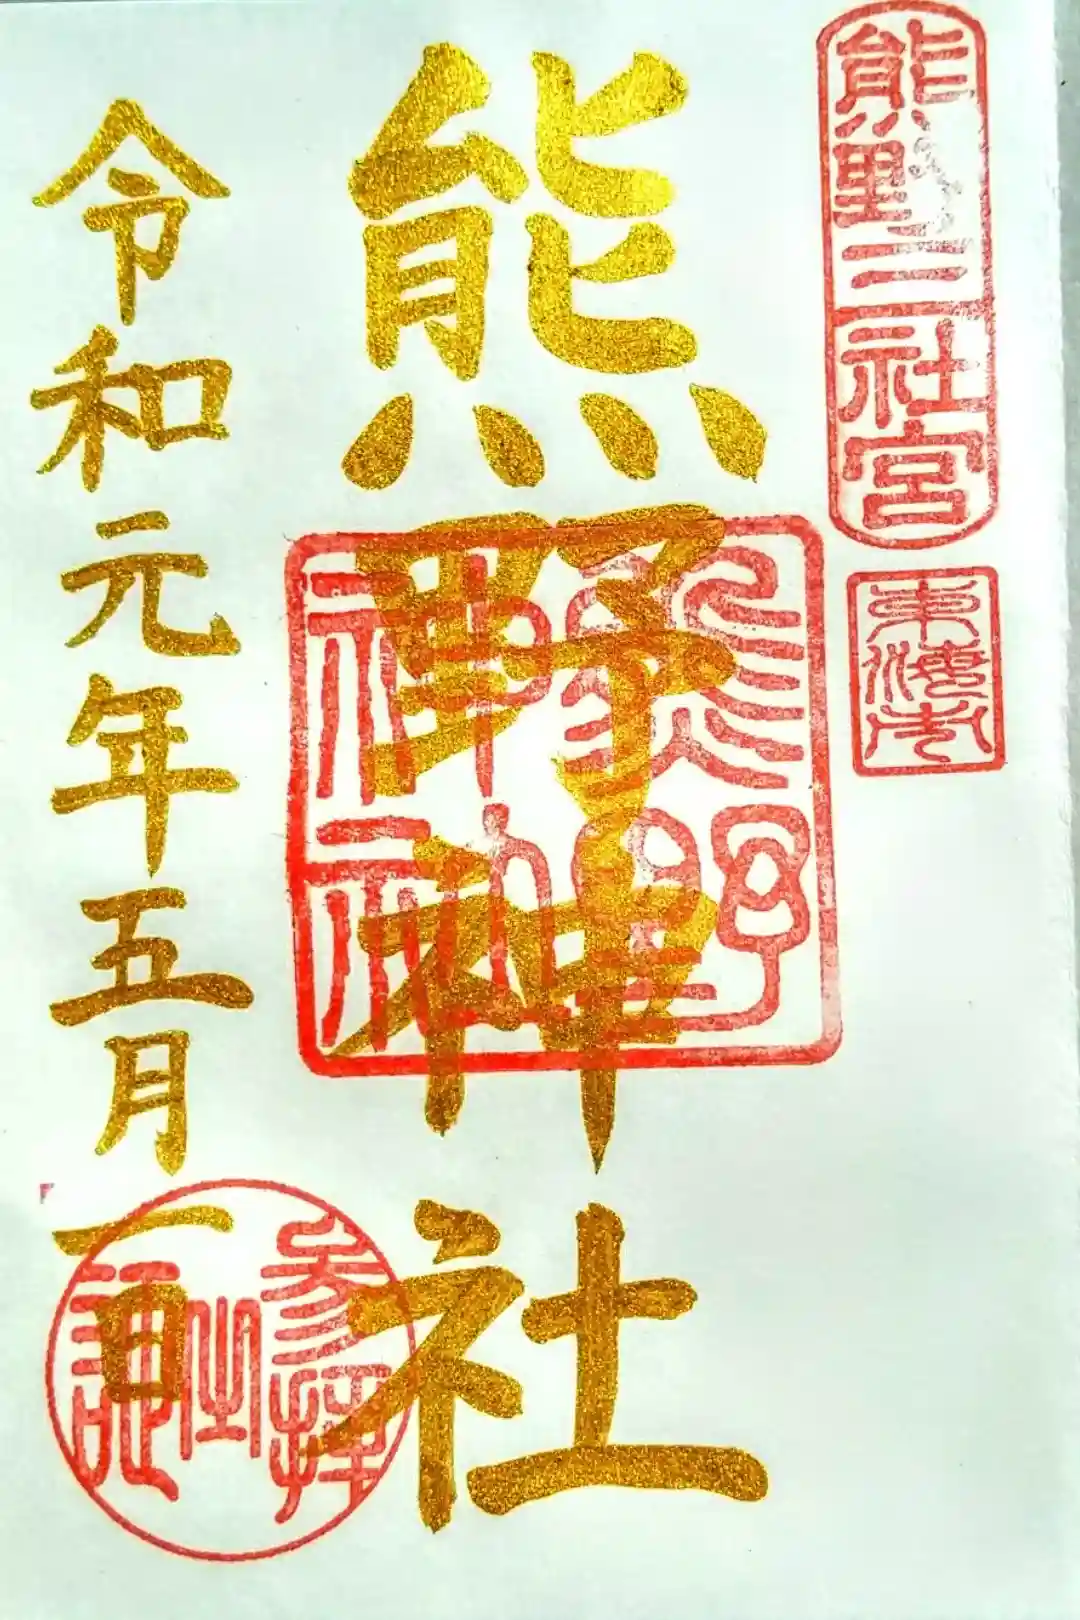 熊野三社宮
東海市
熊野神社
熊野
神社
令和元年五月一日
参拝
之
記